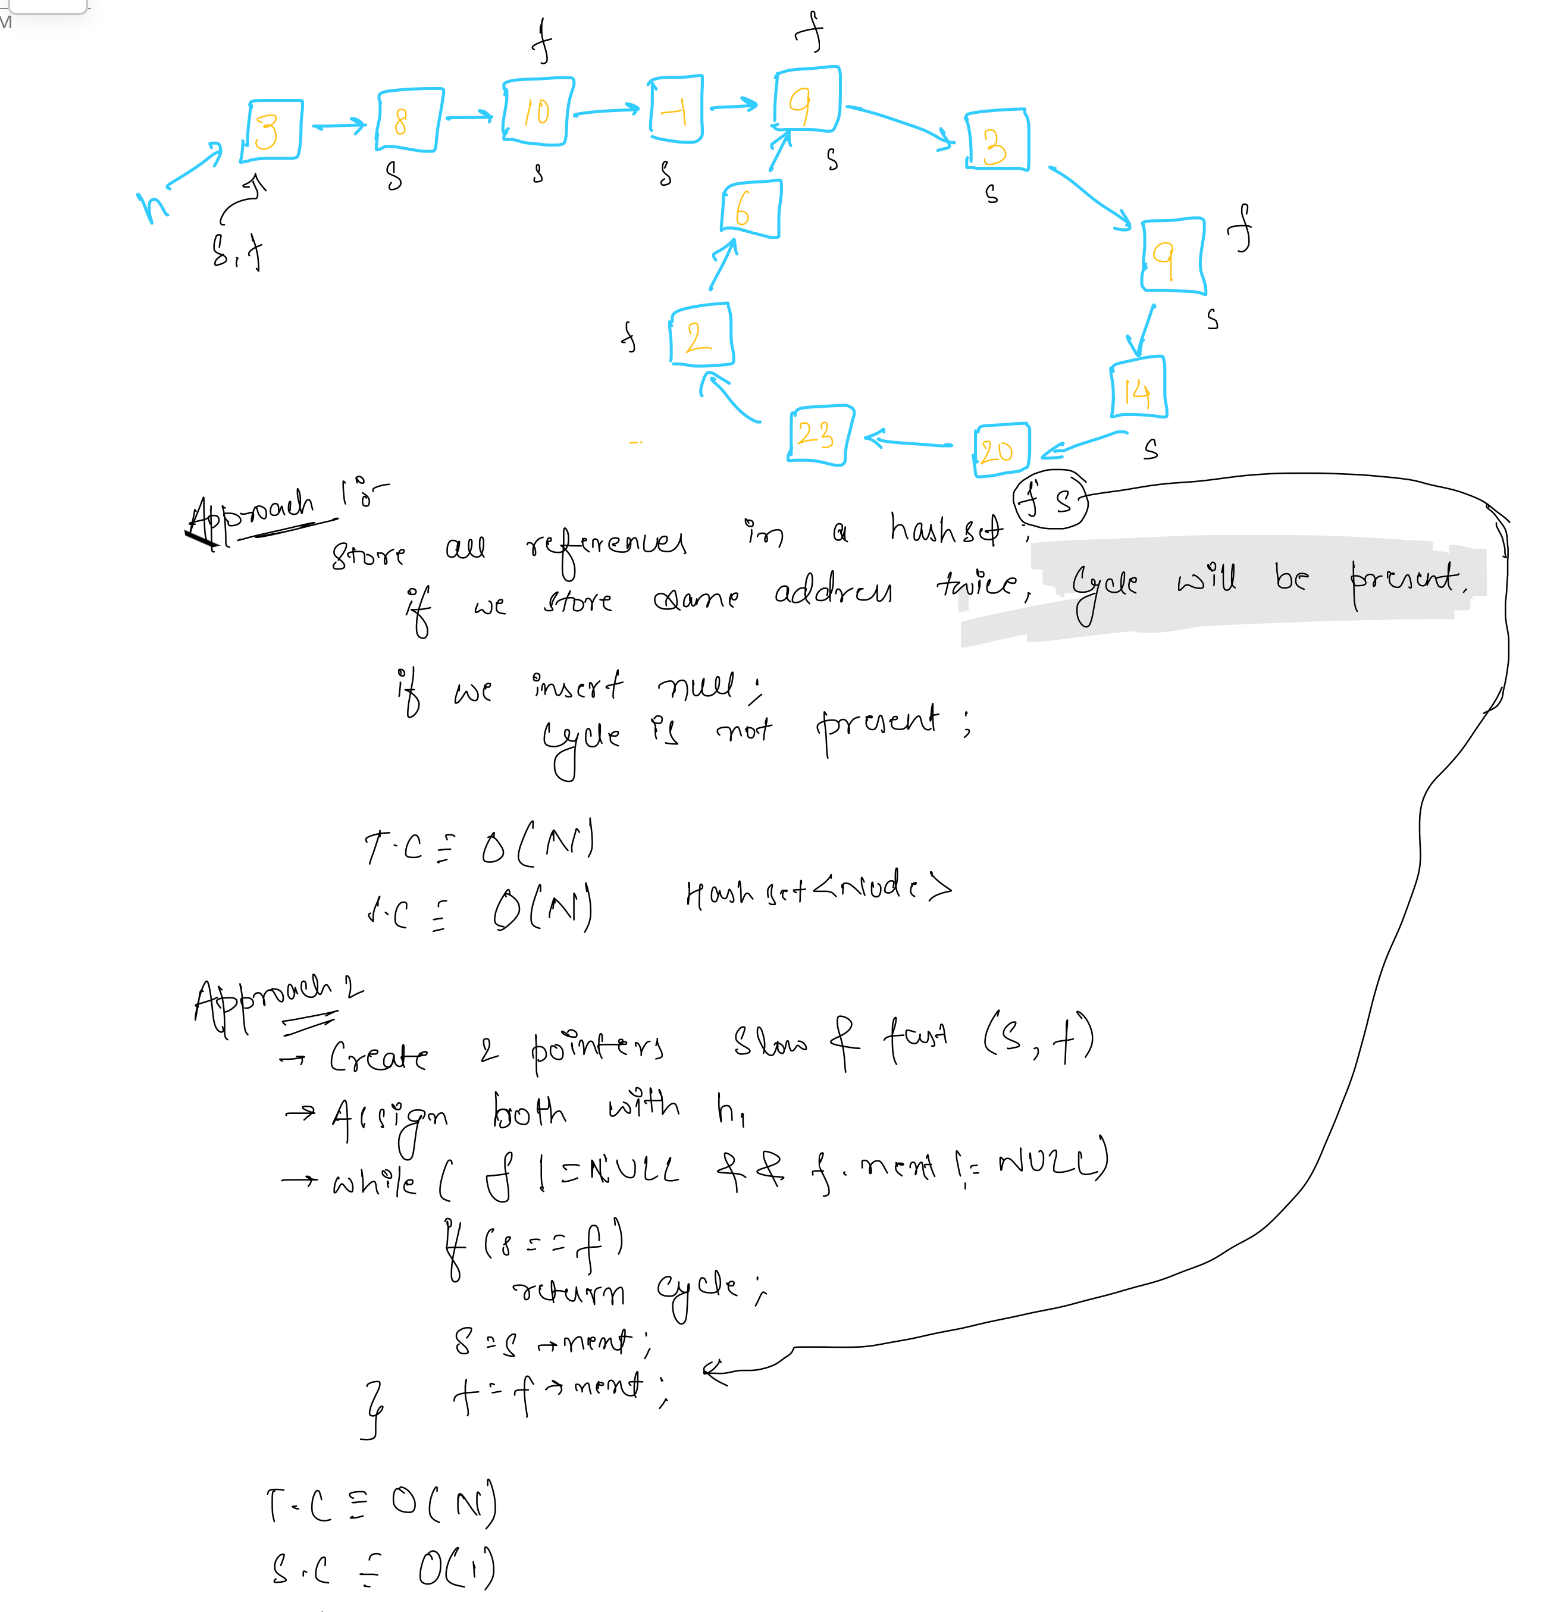 M
f f
3 8 10 -1 9
h s s s s 3
s,f s
6
9 f
s
f 2
14
23 20 s
f s
Approach 1:-
Store all references in a hashset.
if we store same address twice, Cycle will be present.
if we insert null;
Cycle is not present;
T.C = O(N)
S.C = O(N) Hashset<Node>
Approach 2
→ Create 2 pointers slow & fast (s, f)
→ Assign both with h,
→ while ( f != NULL && f.next != NULL)
if (s == f)
return cycle;
s = s → next;
f = f → next;
}
T.C = O(N)
S.C = O(1)